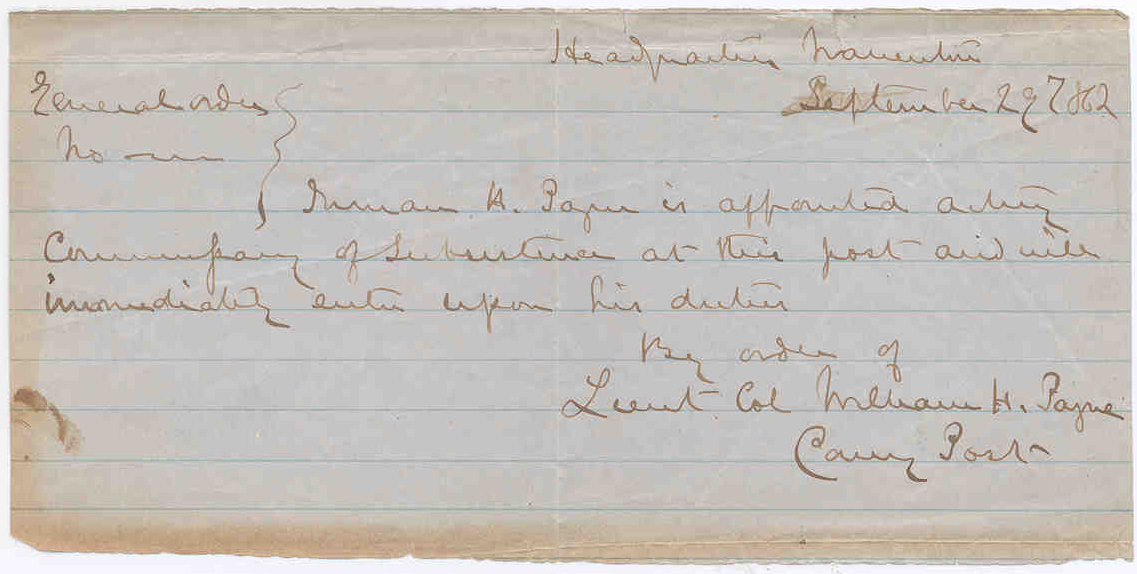 Headquarters Warrenton
September 29 1862
General orders
No —
Inman H. Payne is appointed acting
Commissary of Subsistence at this post and will
immediately enter upon his duties
By order of
Lieut. Col William H. Payne
Comg Post